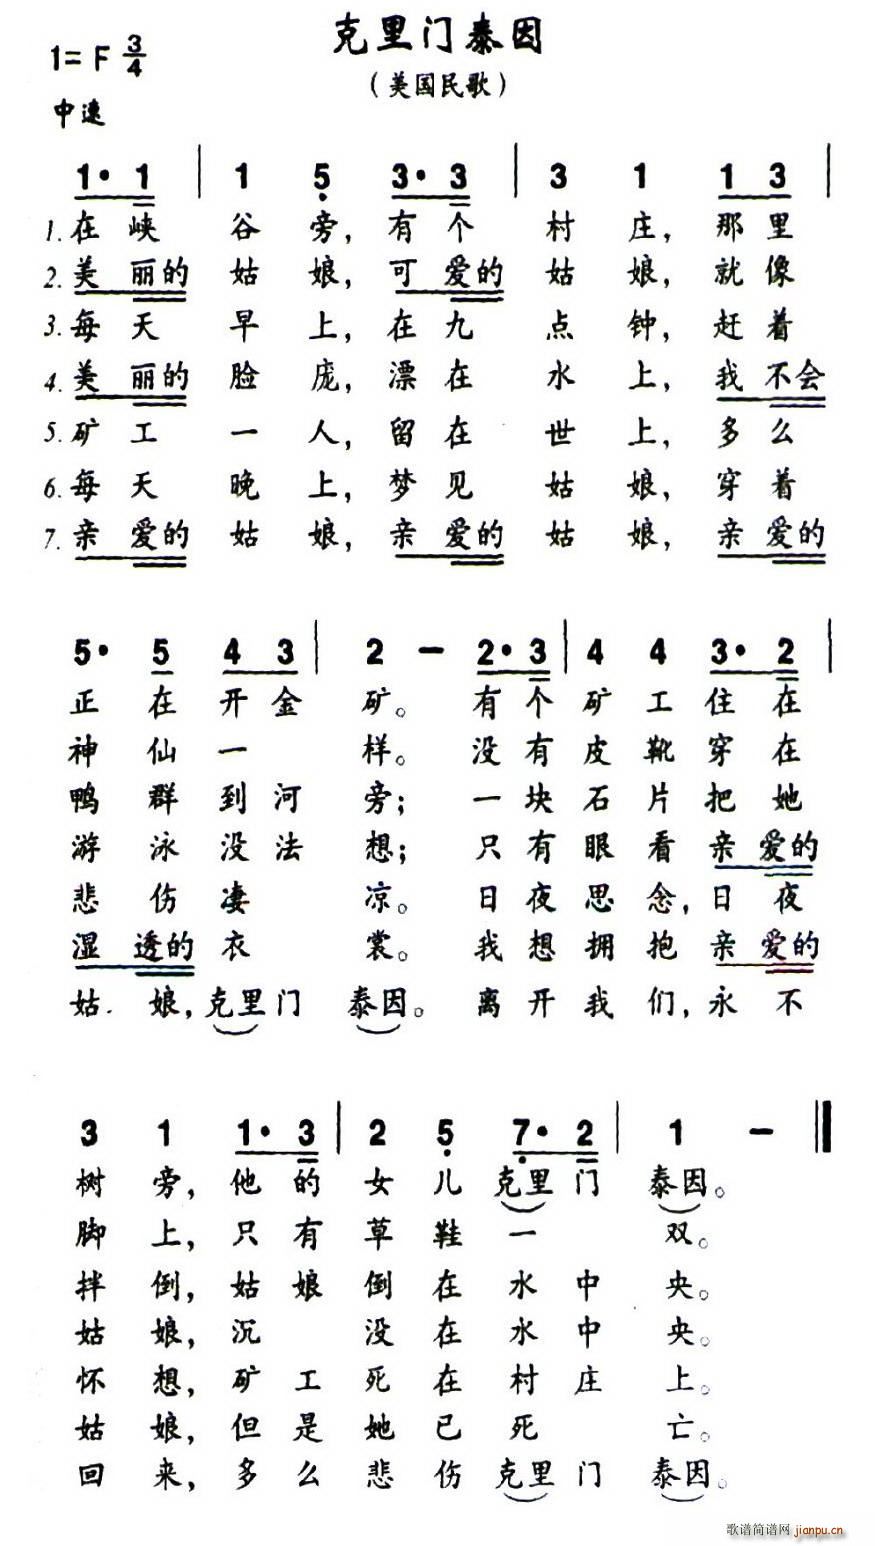 克里门泰因
1=F 3/4
（美国民歌）
中速
1· 1 | 1 5 3· 3 | 3 1 1 3 |
1.在峡谷旁，有个村庄，那里
2.美丽的姑娘，可爱的姑娘，就像
3.每天早上，在九点钟，赶着
4.美丽的脸庞，漂在水上，我不会
5.矿工一人，留在世上，多么
6.每天晚上，梦见姑娘，穿着
7.亲爱的姑娘，亲爱的姑娘，亲爱的
5· 5 4 3 | 2 - 2· 3 | 4 4 3· 2 |
正在开金矿。有个矿工住在
神仙一样。没有皮靴穿在
鸭群到河旁；一块石片把她
游泳没法想；只有眼看亲爱的
悲伤凄凉。日夜思念，日夜
湿透的衣裳。我想拥抱亲爱的
姑娘，克里门泰因。离开我们，永不
3 1 1· 3 | 2 5 7· 2 | 1 - ‖
树旁，他的女儿克里门泰因。
脚上，只有草鞋一双。
拌倒，姑娘倒在水中央。
姑娘，沉没在水中央。
怀想，矿工死在村庄上。
姑娘，但是她已死亡。
回来，多么悲伤克里门泰因。
歌谱简谱网 jianpu.cn